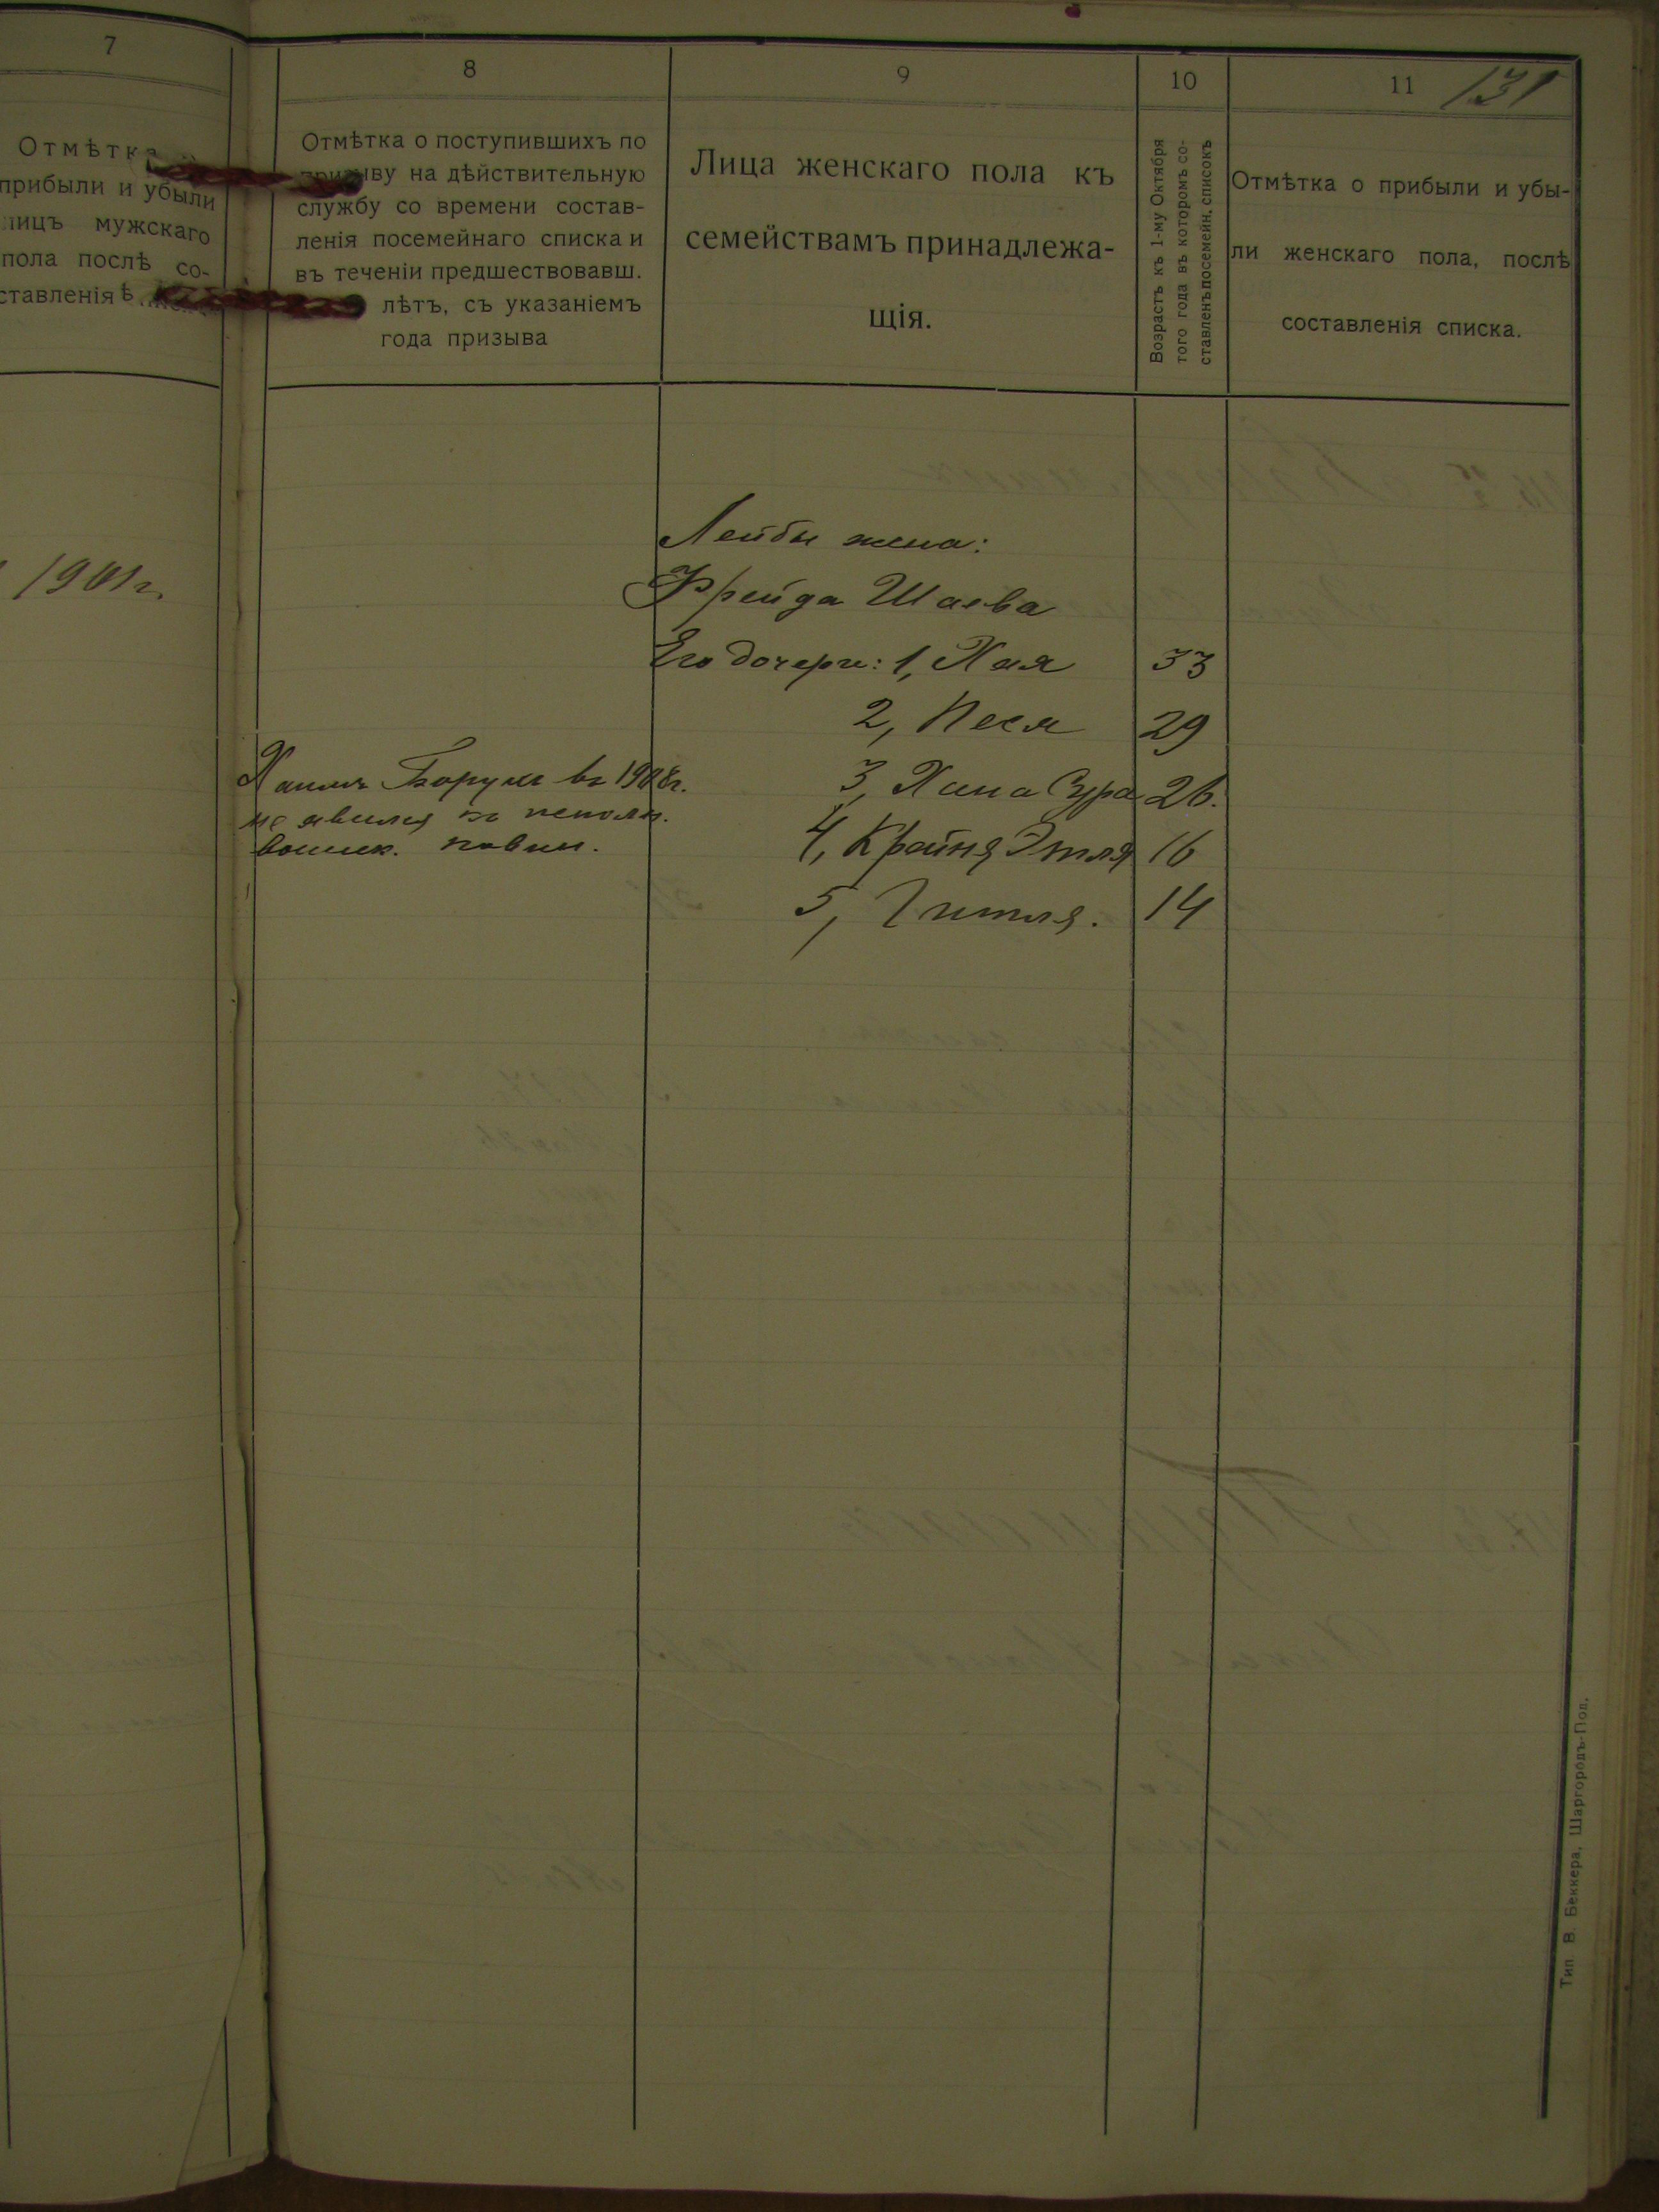 7
Отмѣтка
прибыли и убыли
лицъ мужскаго
пола послѣ со-
ставленія
1901г.
8
Отмѣтка о поступившихъ по
призыву на дѣйствительную
службу со времени состав-
ленія посемейнаго списка и
въ теченіи предшествовавш.
лѣтъ, съ указаніемъ
года призыва
Хаимъ Борухъ въ 1908г.
не явился къ исполн.
воинск. повин.
9
Лица женскаго пола къ
семействамъ принадлежа-
щія.
10
Возрастъ къ 1-му Октября
того года въ которомъ со-
ставленъ посемейн. списокъ
11 131
Отмѣтка о прибыли и убы-
ли женскаго пола, послѣ
составленія списка.
Лейбы жена:
Фрейда Шаева
Его дочери: 1, Хая 33
2, Песя 29
3, Хана Сура 26.
4, Крайня Этля 16
5, Гитля. 14
Тип. В. Беккера, Шаргородъ-Под.